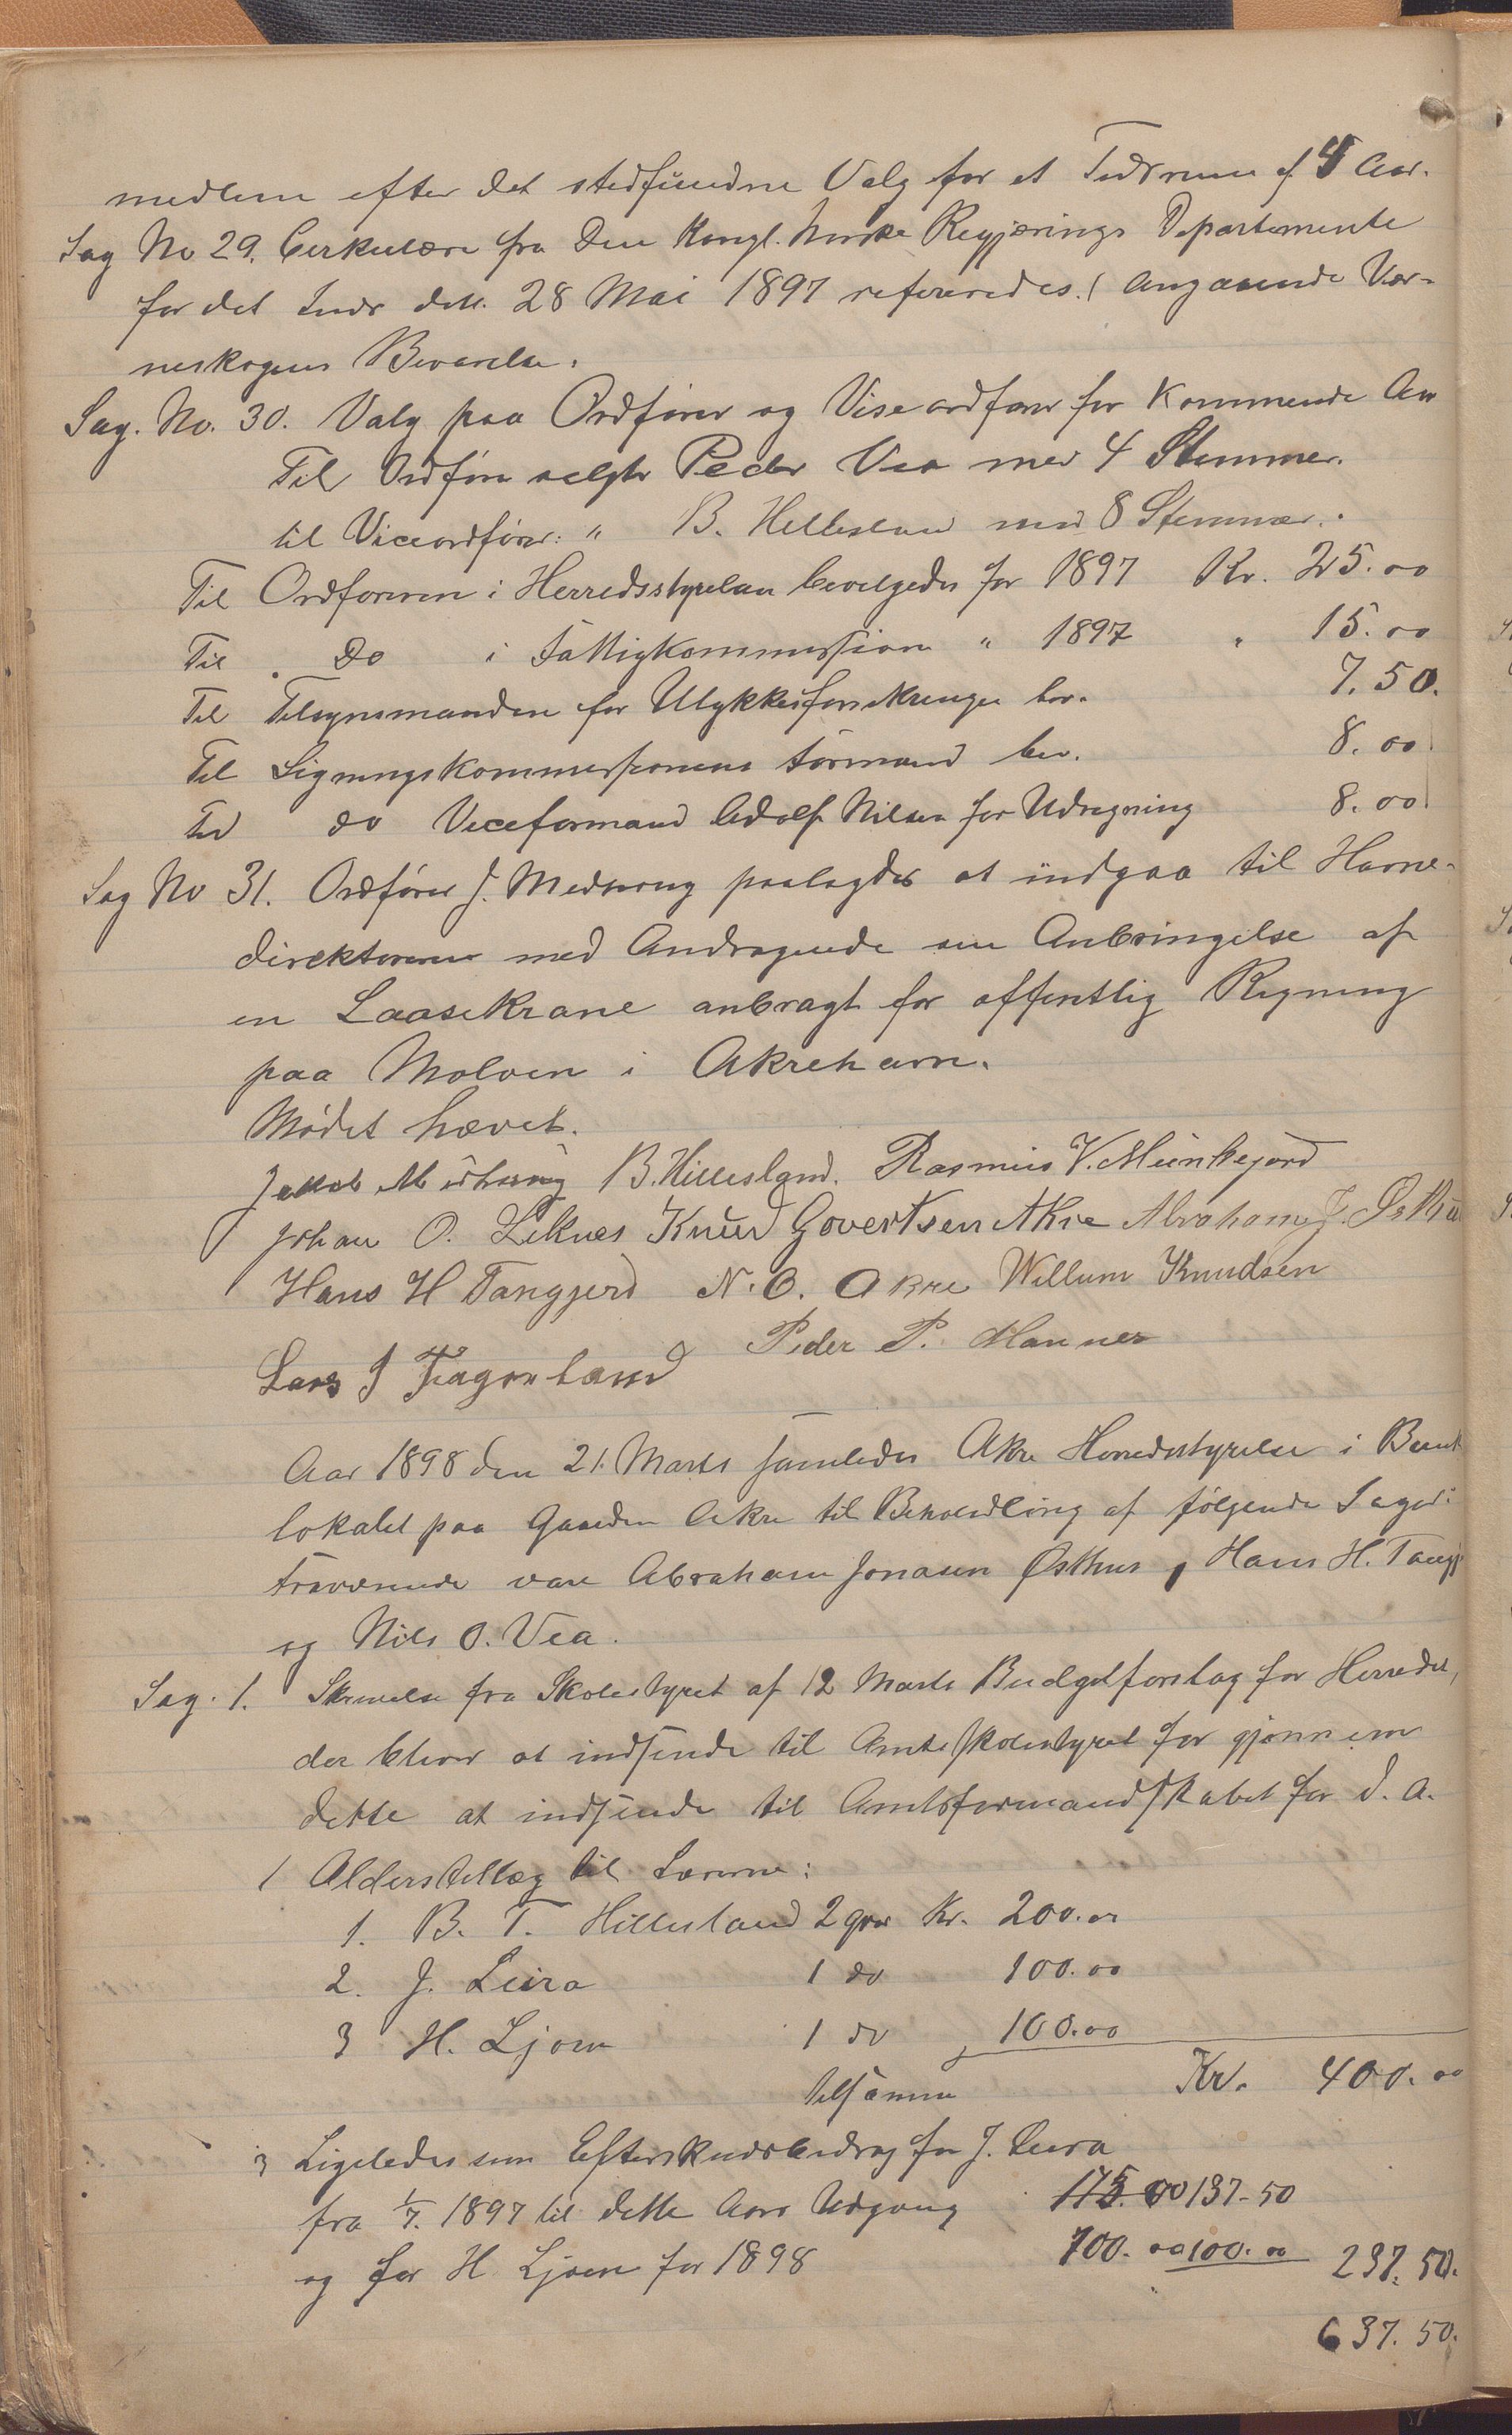 medlem efter det stedfundne Valg for et Tidsrum af 4 Aar.
Sag No 29. Cirkulære fra den Kongl. Norske Regjerings Departemente
for det Indr dat. 28 Mai 1897 refereredes. (angaaende Vær-
neskogens Bevarelse.
Sag. No. 30. Valg paa Ordfører og Viseordfører for kommende Aar
Til Ordfører valgtes Peder Vea med 4 Stemmer.
til Viceordfører: " B. Hillesland med 8 Stemmer.
Til Ordføreren i Herredsstyrelsen bevilgedes for 1897 Kr. 25.00
Til do i Fattigkommissionen " 1897 " 15.00
Til Tilsynsmanden for Ulykkesforsikringen bev. 7.50.
Til Ligningskommissionens Formand bev. 8.00
Til do Viceformand Adolf Nilsen for Udregning 8.00
Sag No 31. Ordfører J. Medhaug paalagdes at indgaa til Havne-
direktøren med Andragende om Anbringelse af
en Laasekrane anbragt for offentlig Regning
paa Moloen i Akrehavn.
Mødet hævet.
Jakob Medhaug B. Hillesland. Rasmus V. Munkejord
Johan O. Liknes Knud Govertsen Akre Abraham J. Østhu
Hans H Tangjerd N. O. Akre Willum Knudsen
Lars J Fagerland Peder P. Mannes
Aar 1898 den 21. Marts samledes Akre Herredsstyrelse i
lokalet paa Gaarden Akre til Behandling af følgende Sager:
Fraværende vare Abraham Jonasen Østhus, Hans H. Tangj
og Nils O. Vea.
Sag. 1. Skrivelse fra Skolestyret af 12 Marts Budgetforslag for Herredet,
der bliver at indsende til Amtsskolestyret for gjennem
dette at indsende til Amtsformandskabet for d. A.
1 Alderstillæg til Lærerne:
1. B. T. Hillesland 2 gra Kr. 200.00
2. J. Leira 1 do 100.00
3 H. Ljoen 1 do 100.00
tilsammen Kr. 400.00
3 Ligeledes som Efterskudsbidrag for J. Leira
fra 1/7. 1897 til dette Aars Udgang 175.00 137-50
og for H Ljoen for 1898 100.00 100.00 237.50.
637.50.